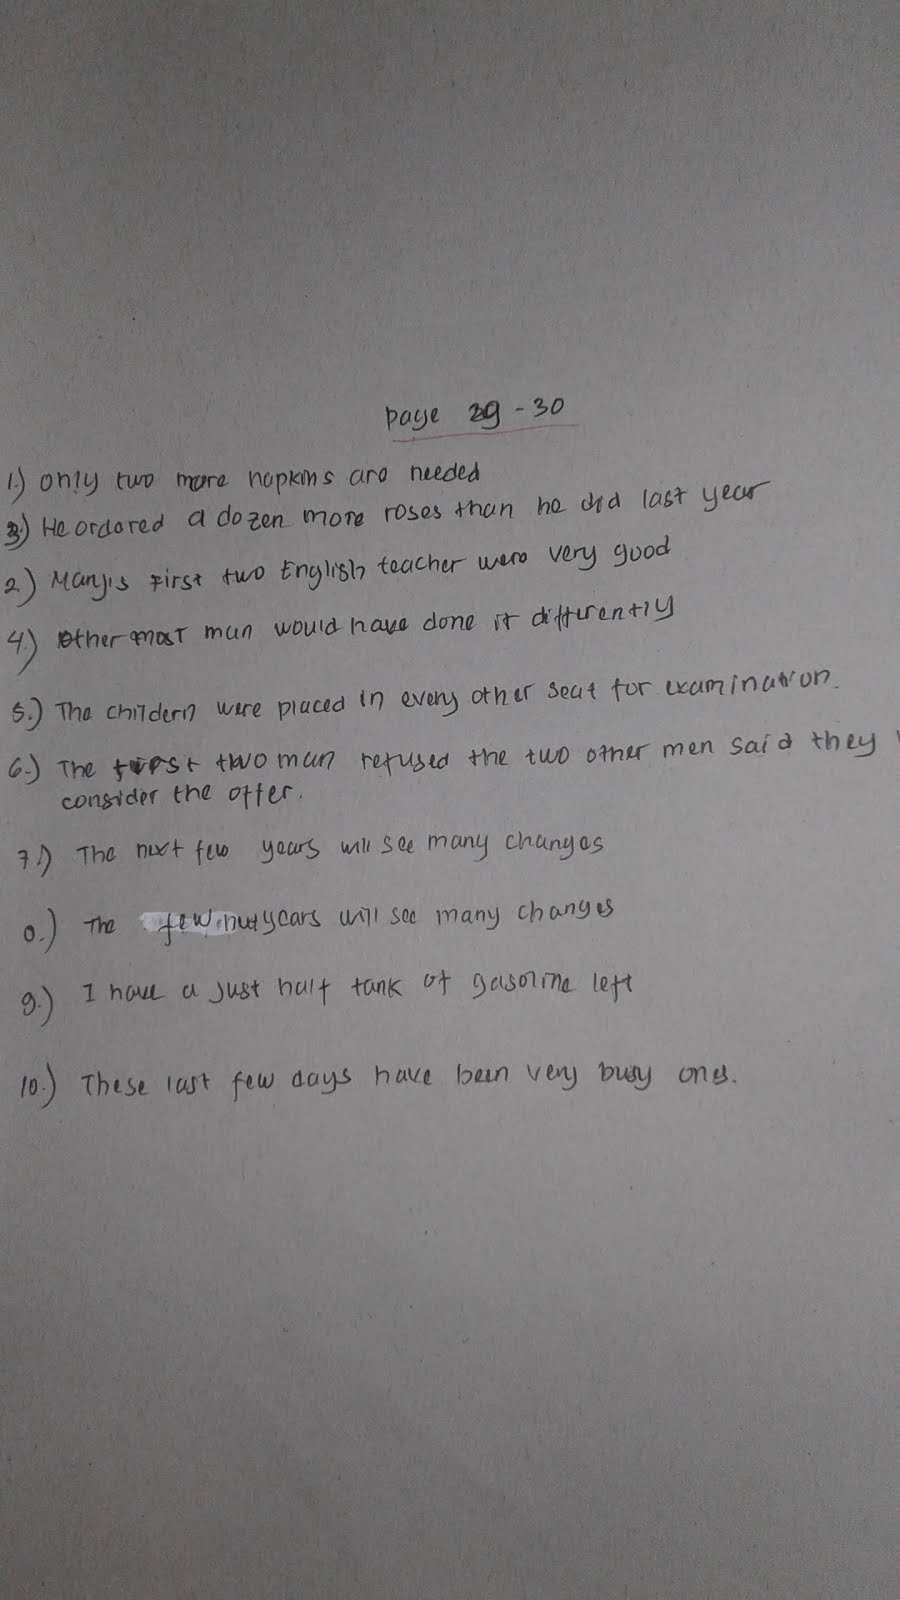 page 29 - 30
1.) only two more napkins are needed
3) He ordored a dozen more roses than he did last year
2.) Mary's First two English teacher were very good
4.) other most man would have done it differently
5.) The childern were placed in every other seat for examination.
6.) The first two man refused the two other men said they
consider the offer.
7.) The next few years will see many changes
0.) The few next years will see many changes
9.) I have a just half tank of gasoline left
10.) These last few days have been very busy ones.